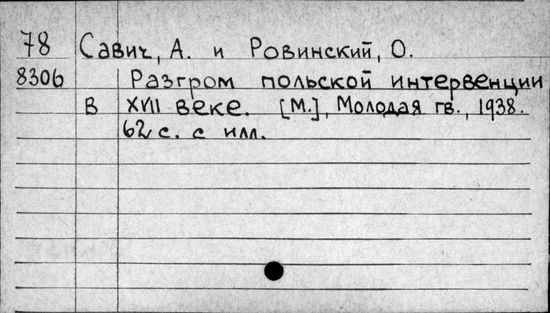 78 Савич, А. и Ровинский, О.
8306 Разгром польской интервенции
в XVII веке. [М.], Молодая гв., 1938.
62 с. с илл.